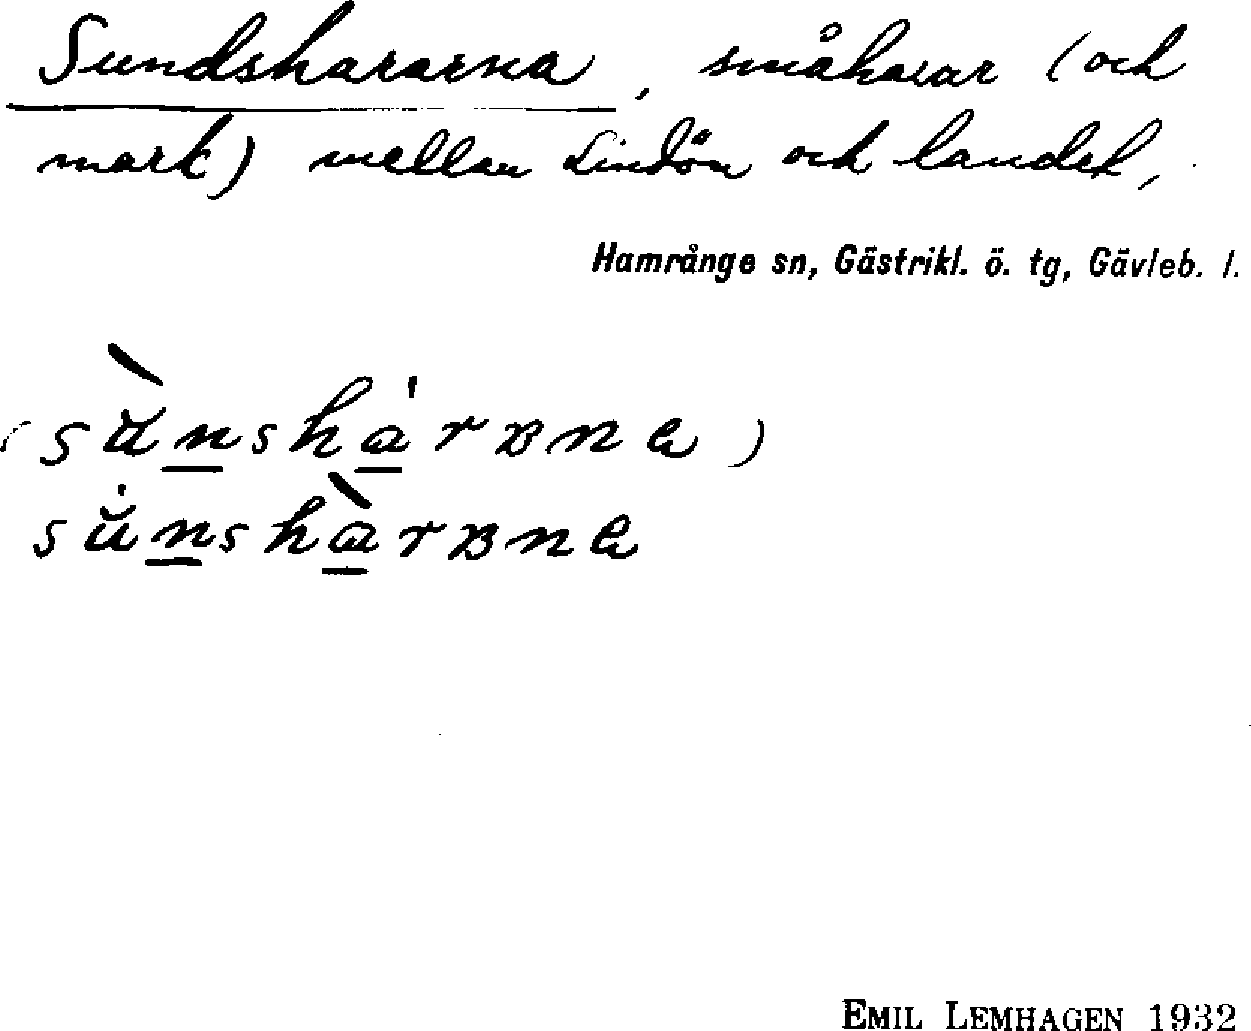 Sundshararna, småharar (och
mark) mellan Lindön och landet,
Hamrånge sn, Gästrikl. ö. tg, Gävleb. l.
EMIL LEMHAGEN 1932